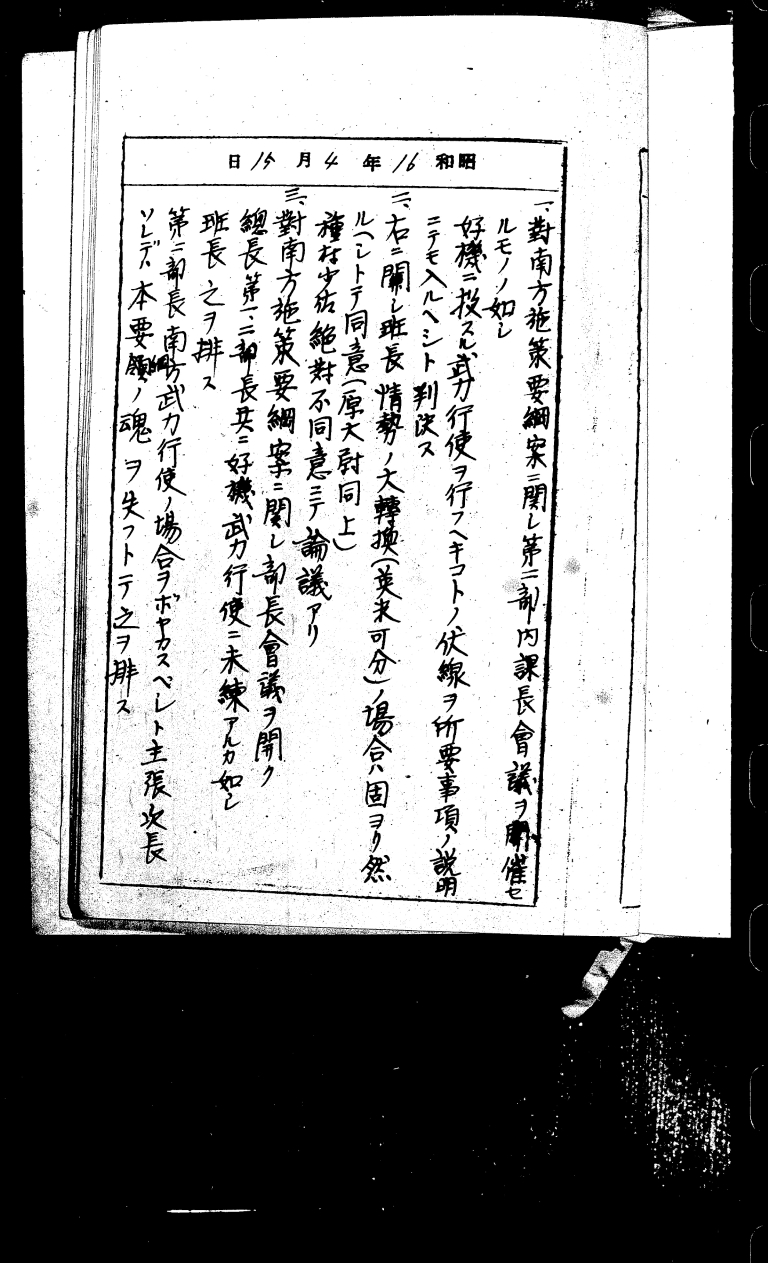 昭和16年4月15日
一、對南方施策要綱案ニ関シ第二部内課長會議ヲ開催セ
ルモノノ如シ
好機ニ投スル武力行使ヲ行フヘキコトノ伏線ヲ所要事項ノ説明
ニテモ入ルヘシト判決ス
二、右ニ関シ班長情勢ノ大轉換(英米可分)ノ場合ハ固ヨリ然
ルヘシトテ同意(原大尉同上)
種村少佐絶対不同意ニテ論議アリ
三、對南方施策要綱案ニ関シ部長會議ヲ開ク
總長第一、二部長共ニ好機武力行使ニ未練アルカ如シ
班長之ヲ排ス
第二部長南方武力行使ノ場合ヲボヤカスベシト主張次長
ソレデハ本要綱ノ魂ヲ失フトテ之ヲ排ス